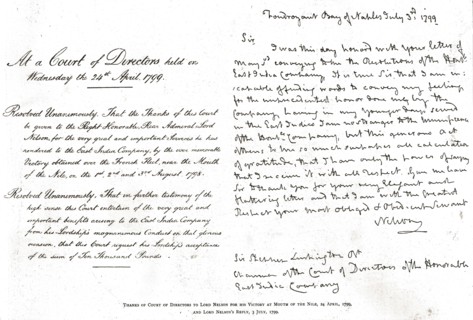 At a Court of Directors held on
Wednesday the 24th April 1799.
Resolved Unanimously. That the Thanks of this Court
be given to the Right Honorable Rear Admiral Lord
Nelson, for the very great and important Services he has
rendered to the East India Company, by the ever memorable
Victory obtained over the French Fleet, near the Mouth
of the Nile, on the 1st 2nd & 3rd August 1798.
Resolved Unanimously. That in further testimony of the
high sense this Court entertain of the very great and
important benefits arising to the East India Company
from his Lordship's magnanimous Conduct on that glorious
occasion, that this Court request his Lordship's acceptance
of the sum of Ten Thousand Pounds
Foudroyant Bay of Naples July 3d 1799
Sir
I was this day honor'd with your letter of
May 3d conveying to me the Resolutions of the Honble
East India Company. It is true Sir that I am in-
capable of finding words to convey my feelings
for the unprecedented honor done me by the
Company. having in my younger days served
in the East Indies I am no stranger to the munificence
of the Honble Company, but this generous act
of theirs to me so much surpasses all calculation
of gratitude, that I have only the power of saying
that I receive it with all respect. Give me leave
Sir to thank you for your very elegant and
flattering letter and that I am with the greatest
Respect your most obliged & Obedt. servant
Nelson
Sir Stephen Lushington Bt
Chairman of the Court of Directors of the Honorable
East India Company
THANKS OF COURT OF DIRECTORS TO LORD NELSON FOR HIS VICTORY AT MOUTH OF THE NILE, 24 APRIL, 1799,
AND LORD NELSON'S REPLY, 3 JULY, 1799.